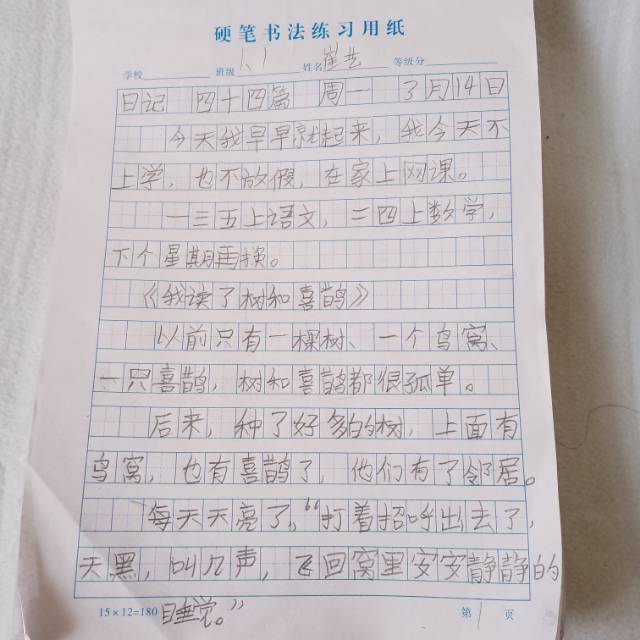 硬笔书法练习用纸
学校 班级 1、1 姓名 崔艺 等级分
日记 四十四篇 周一 3月14日
今天我早早就起来，我今天不
上学，也不放假，在家上网课。
一三五上语文，二四上数学，
下个星期再换。
《我读了树和喜鹊》
以前只有一棵树、一个鸟窝、
一只喜鹊，树和喜鹊都很孤单。
后来，种了好多的树，上面有
鸟窝，也有喜鹊了，他们有了邻居。
每天天亮了，“打着招呼出去了，
天黑，叫几声，飞回窝里安安静静的
睡觉。”
15×12=180 第 1 页